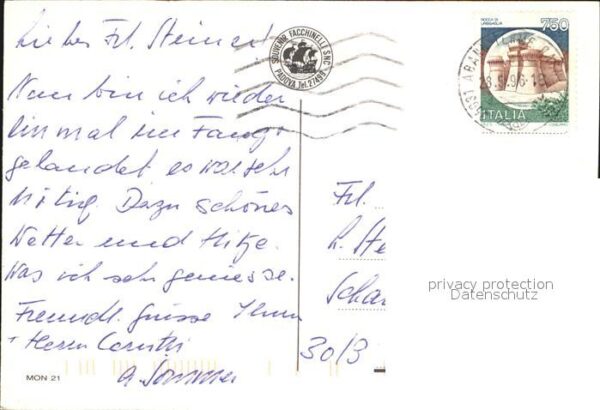 Liebes Frl. Steinert
Nun bin ich wieder
einmal im Fango
gelandet es war sehr
nötig. Dazu schönes
Wetter und Hitze.
Was ich sehr geniesse.
Freundl. Grüsse Ihnen
+ Herrn
A. Sommer
MON 21
SOUVENIR FACCHINELLI SNC
PADOVA Tel.
ROCCA DI
URBISAGLIA
750
ITALIA
ABANO TERME
96-18
Frl.
L. Ste
Scha
30/3
privacy protection
Datenschutz